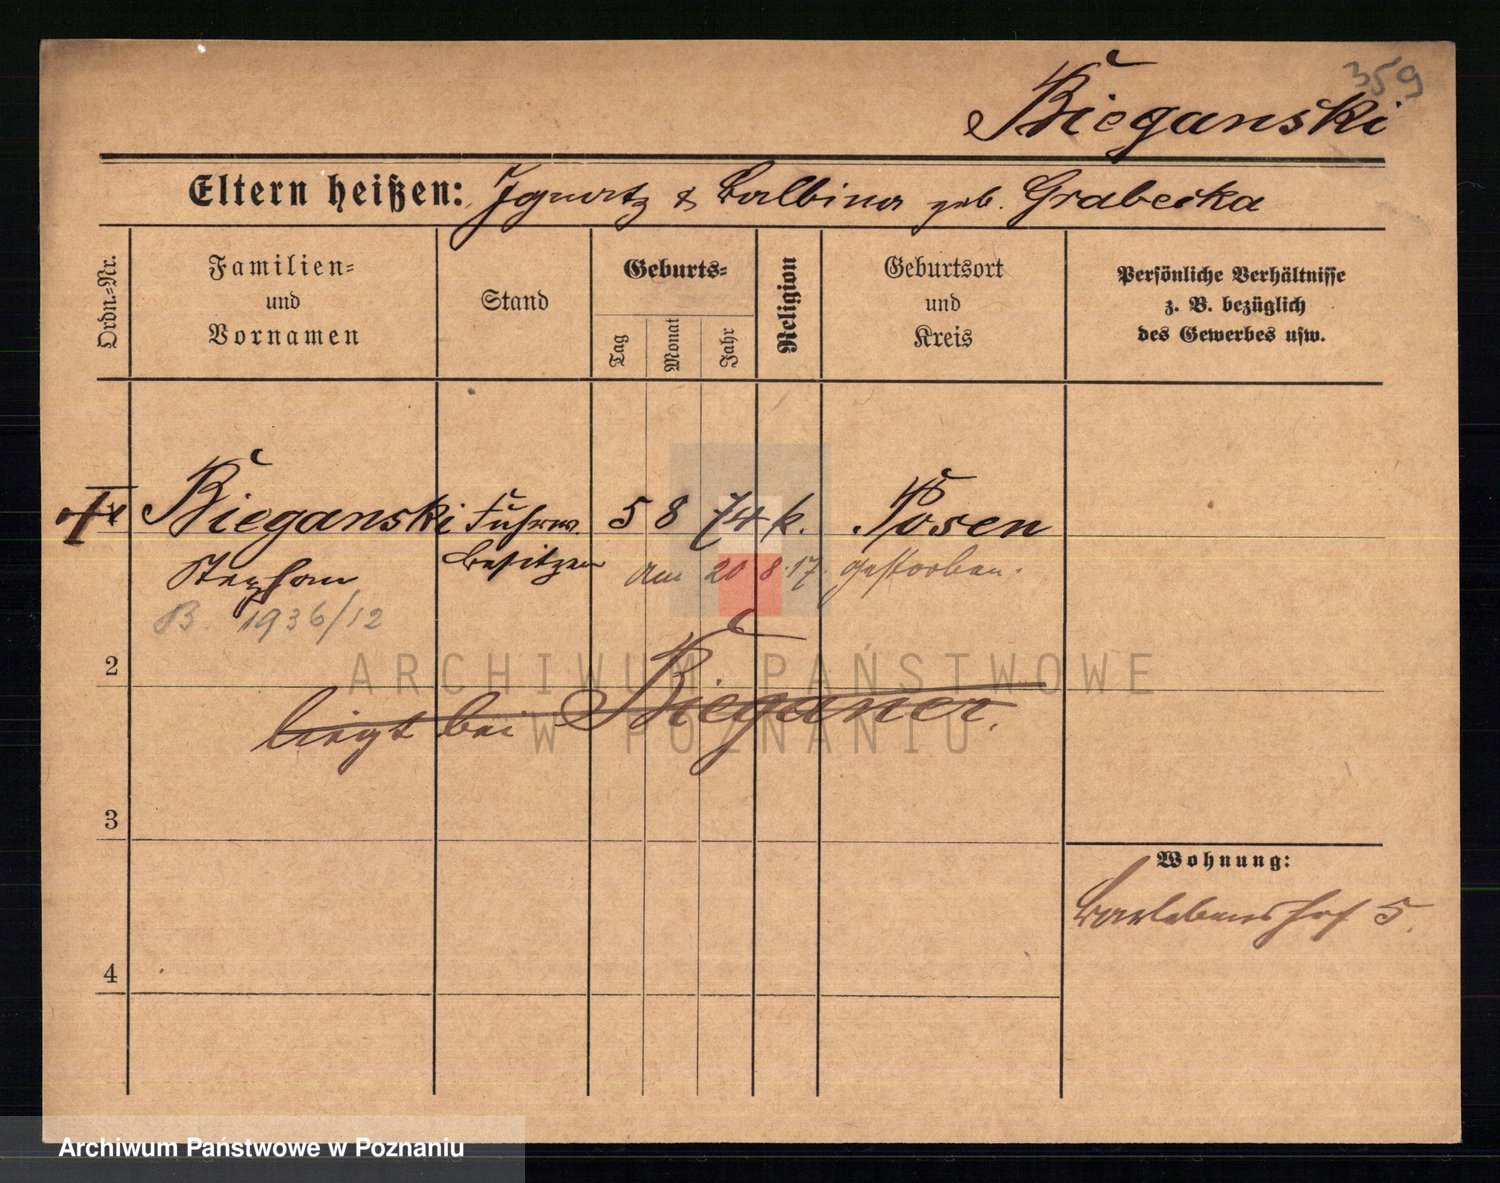 359
Bieganski
Eltern heißen: Ignatz & Balbina geb. Grabecka
Ordn.-Nr.
Familien-
und
Vornamen
Stand
Geburts-
Tag
Monat
Jahr
Religion
Geburtsort
und
Kreis
Persönliche Verhältnisse
z. B. bezüglich
des Gewerbes usw.
Bieganski Fuhrw. 5 8 74 k. Posen
Stephan besitzer am 20 8.17. gestorben.
B. 1936/12
2
liegt bei Bieganer.
3
Wohnung:
Barlebenshof 5.
4
ARCHIWUM PAŃSTWOWE
W POZNANIU
Archiwum Państwowe w Poznaniu